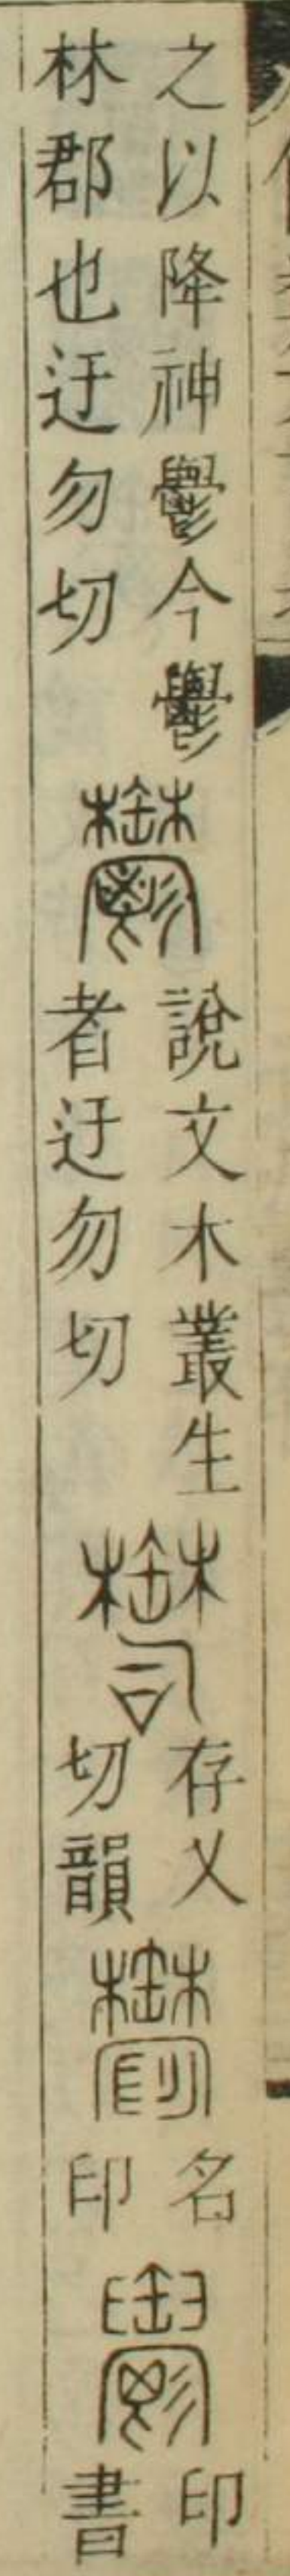 之以降神鬱今鬱
林郡也迂勿切
鬱
說文木叢生
者迂勿切
存乂
切韻
名
印
印
書